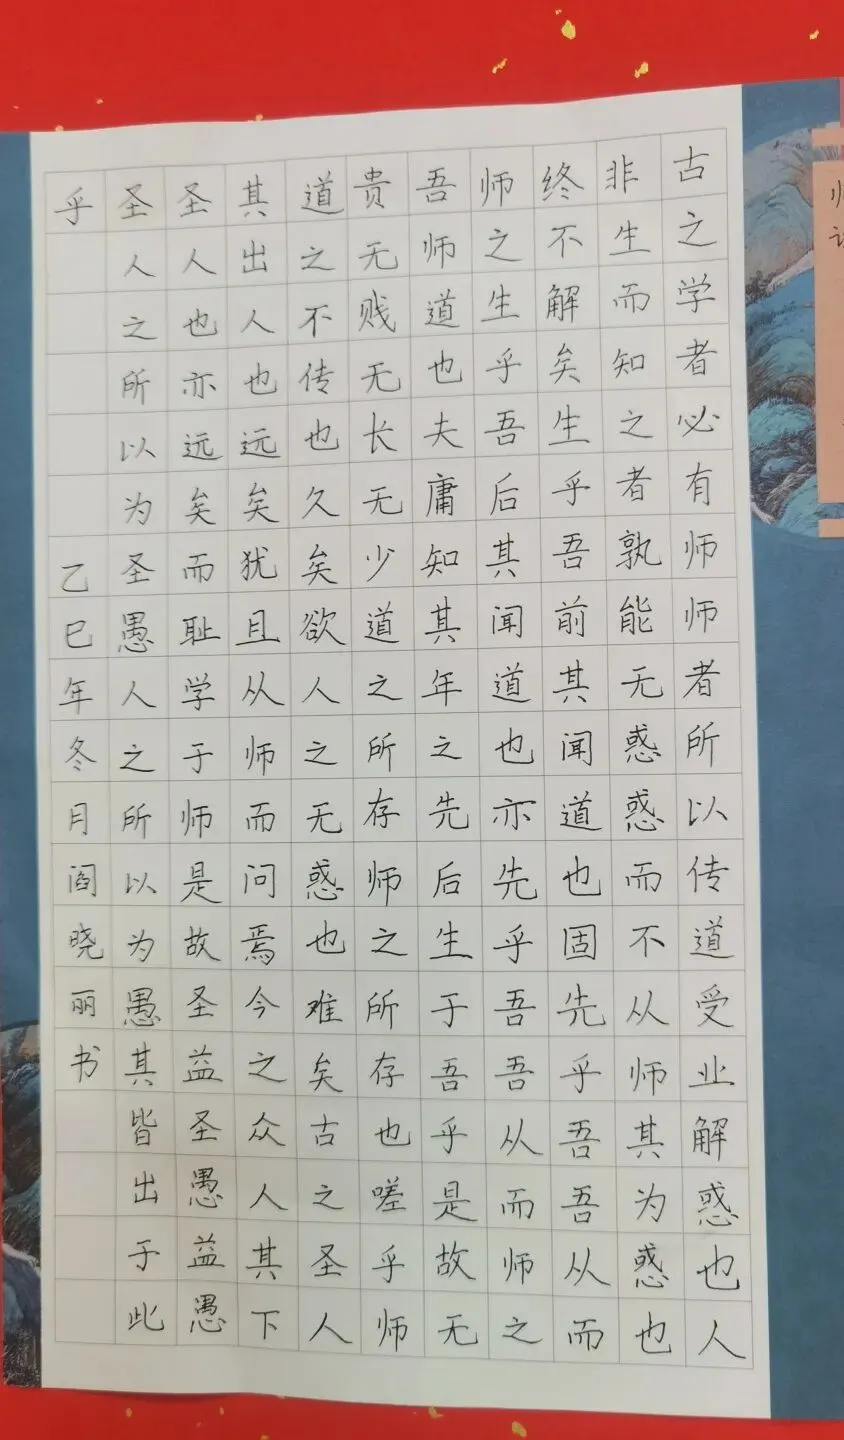 古之学者必有师师者所以传道受业解惑也人
非生而知之者孰能无惑惑而不从师其为惑也
终不解矣生乎吾前其闻道也固先乎吾吾从而
师之生乎吾后其闻道也亦先乎吾吾从而师之
吾师道也夫庸知其年之先后生于吾乎是故无
贵无贱无长无少道之所存师之所存也嗟乎师
道之不传也久矣欲人之无惑也难矣古之圣人
其出人也远矣犹且从师而问焉今之众人其下
圣人也亦远矣而耻学于师是故圣益圣愚益愚
圣人之所以为圣愚人之所以为愚其皆出于此
乎 乙巳年冬月阎晓丽书